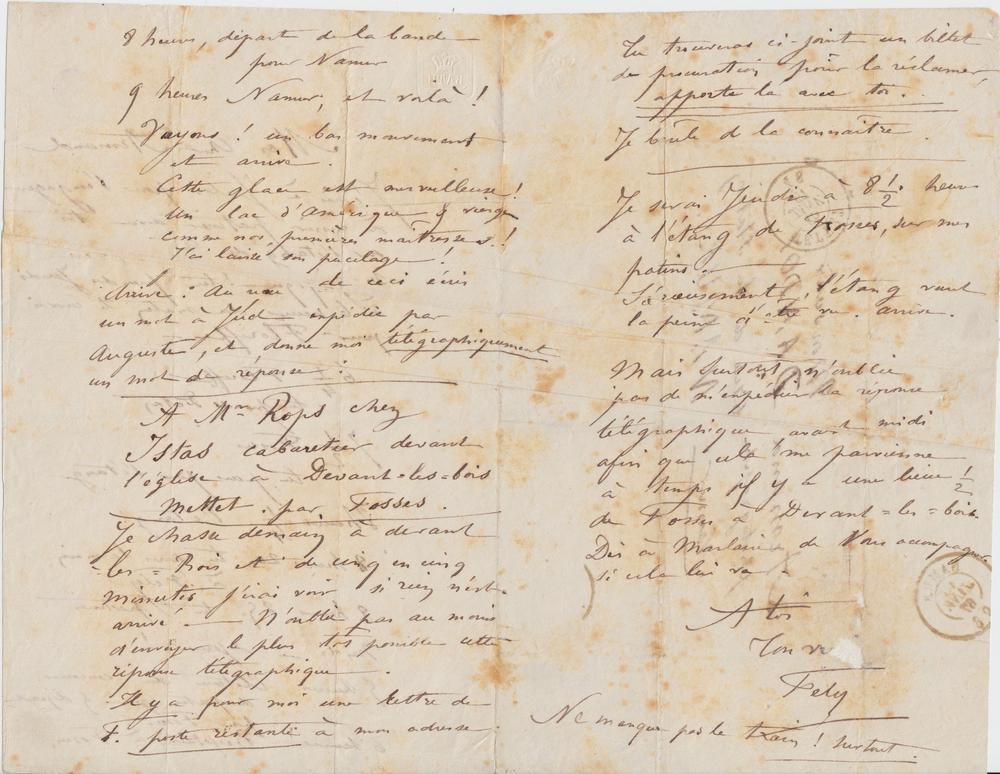 8 heures, départ de la bande
pour Namur
9 heures Namur, et voilà !
Voyons ! un bon mouvement
et arrive.
Cette glace est merveilleuse !
un lac d'amérique, vierge
comme nos premières maîtresses !
J'ai laissé son pucelage !
Arrive : Au de ceci écris
un mot à Jud expédie par
Auguste, et donne moi télégraphiquement
un mot de réponse :
A Mr Rops chez
Istas cabaretier devant
l'église à Devant=les=bois
Mettet. par Fosses.
Je chasse demain à devant
=les=Bois et de cinq en cinq
minutes j'irai voir si rien n'est
arrivé — N'oublie pas au moins
d'envoyer le plus tôt possible cette
réponse télégraphique.
Il y a pour moi une lettre de
F. poste restante à mon adresse.
Tu trouveras ci-joint un billet
de procuration pour la réclamer,
apporte la avec toi.
Je brûle de la connaître.
Je serai Jeudi à 8 1/2 heures
à l'étang de Fosses, sur mes
patins.
Sérieusement, l'étang vaut
la peine d'être vu. arrive.
Mais surtout n'oublie
pas de m'expédier la réponse
télégraphique avant midi
afin que cela me parvienne
à temps il y a une lieue 1/2
de Fosses à Devant=les=bois.
Dis à de vous accompagner
si cela lui va.
A toi
Ton
Fély
Ne manque pas le train ! surtout.